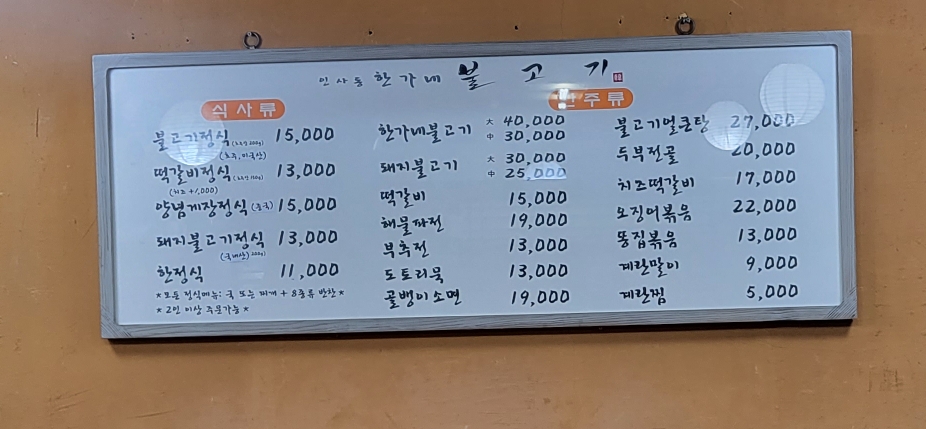 인사동 한가네 불고기
식사류
불고기정식 15,000
(호주,미국산)
떡갈비정식 13,000
(치즈 +1,000)
양념게장정식 (중국) 15,000
돼지불고기정식 13,000
(국내산) 200g)
한정식 11,000
*모든 정식메뉴: 국 또는 찌개 + 8종류 반찬*
*2인 이상 주문가능*
안주류
한가네불고기 大 40,000
中 30,000
돼지불고기 大 30,000
中 25,000
떡갈비 15,000
해물파전 19,000
부추전 13,000
도토리묵 13,000
골뱅이소면 19,000
불고기얼큰탕 27,000
두부전골 20,000
치즈떡갈비 17,000
오징어볶음 22,000
똥집볶음 13,000
계란말이 9,000
계란찜 5,000